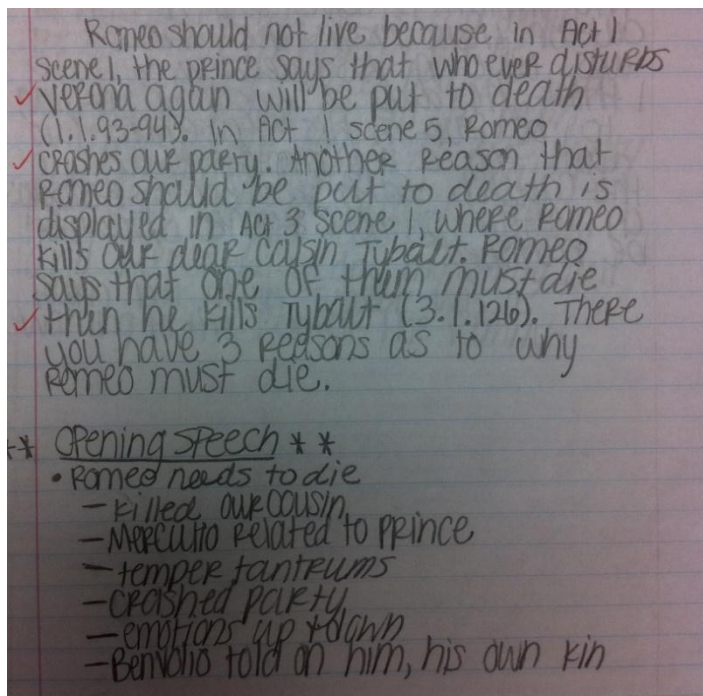 Romeo should not live because in Act 1
scene 1, the prince says that whoever disturbs
verona again will be put to death
(1.1.93-94). In Act 1 scene 5, Romeo
crashes our party. Another reason that
Romeo should be put to death is
displayed in Act 3 scene 1, where Romeo
kills our dear cousin Tybalt. Romeo
says that one of them must die
then he kills Tybalt (3.1.126). There
you have 3 reasons as to why
Romeo must die.
** Opening Speech **
• Romeo needs to die
- killed our cousin
- Mercutio related to prince
- temper tantrums
- crashed party
- emotions up + down
- Benvolio told on him, his own kin